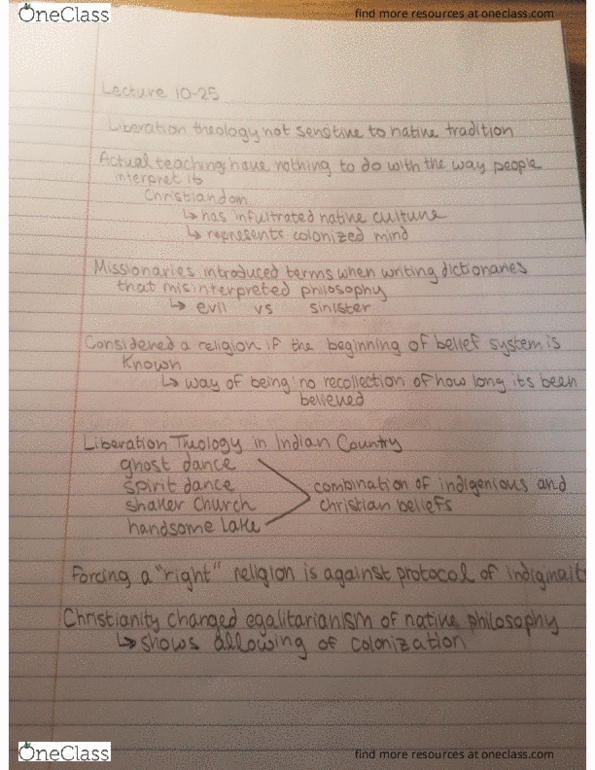 OneClass
find more resources at oneclass.com
Lecture 10-25
Liberation theology not sensitive to native tradition
Actual teachings have nothing to do with the way people
interpret it
Christiandom
↳ has infultrated native culture
↳ represents colonized mind
Missionaries introduced terms when writing dictionaries
that misinterpreted philosophy
↳ evil vs sinister
Considered a religion if the beginning of belief system is
Known
↳ way of being: no recollection of how long its been
believed
Liberation Theology in Indian Country
ghost dance
spirit dance
shaker church
handsome lake
combination of indigenious and
christian beliefs
Forcing a "right" religion is against protocol of
Christianity changed egalitarianism of native philosophy
↳ shows allowing of colonization
OneClass
find more resources at oneclass.com